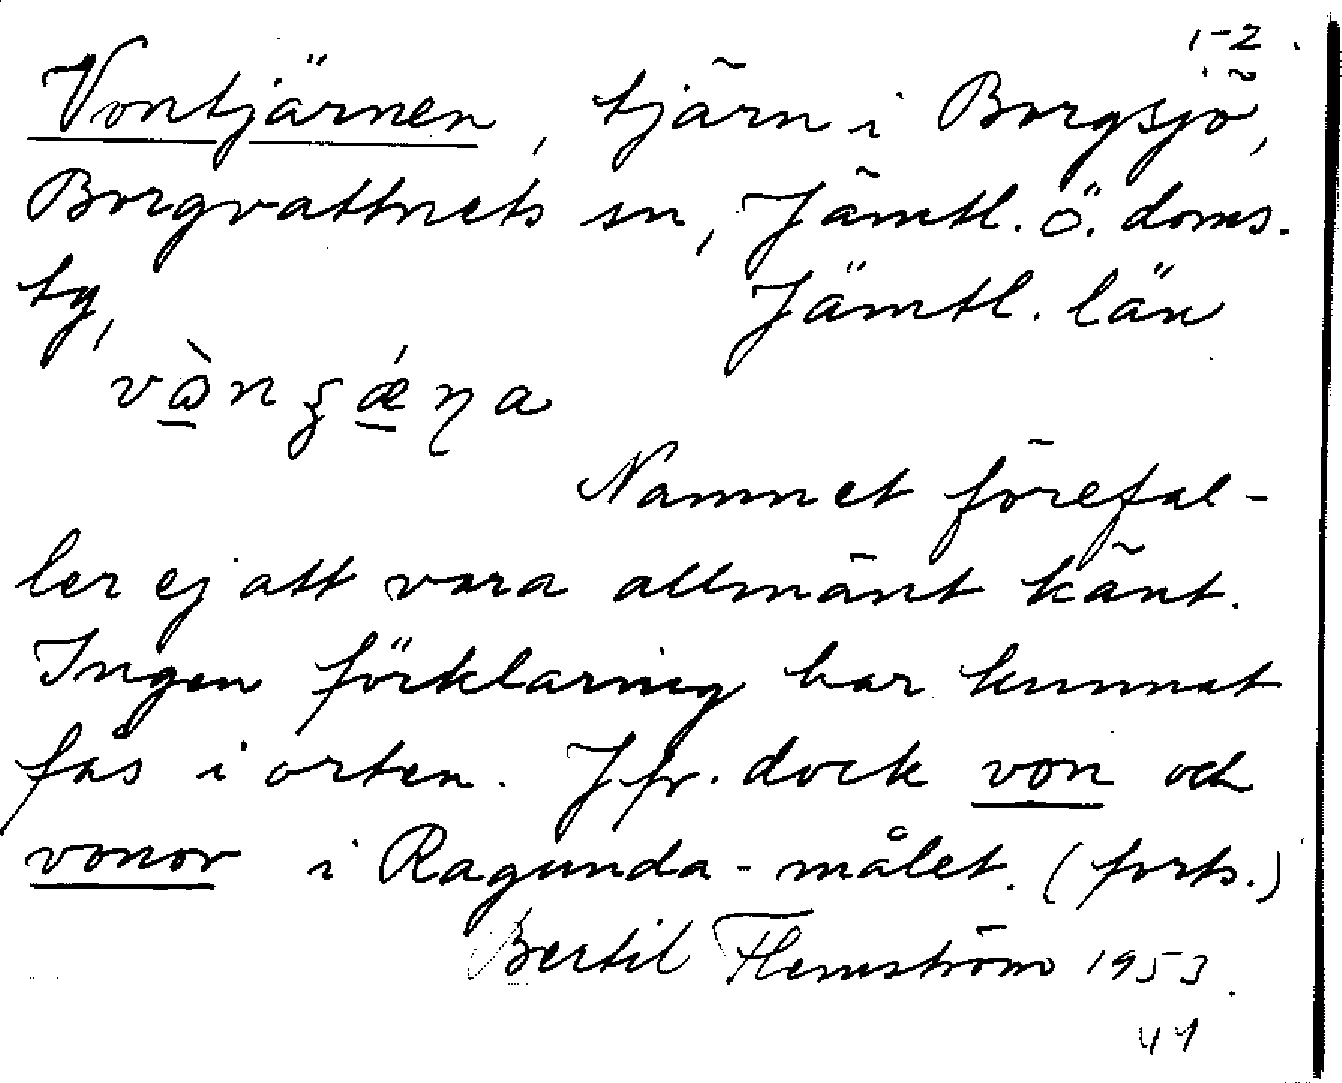 1-2.
Vontjärnen, tjärn i Borgsjö,
Borgvattnets sn, Jämtl. ö. doms.
tg,
Jämtl. län
Namnet förefal-
ler ej att vara allmänt känt.
Ingen förklaring har kunnat
fås i orten. Jfr. dock von och
vonor i Ragunda-målet. (forts.)
Bertil Flemström 1953.